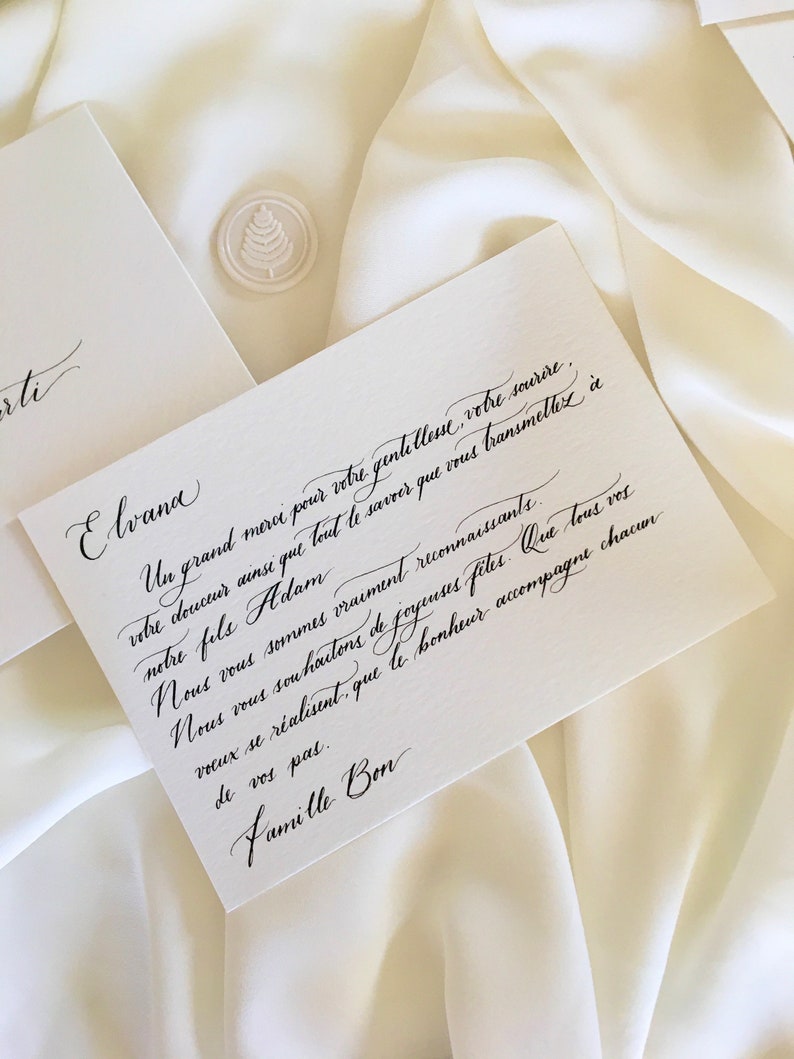 Elvana
Un grand merci pour votre gentillesse, votre sourire,
votre douceur ainsi que tout le savoir que vous transmettez à
notre fils Adam
Nous vous sommes vraiment reconnaissants.
Nous vous souhaitons de joyeuses fêtes. Que tous vos
voeux se réalisent, que le bonheur accompagne chacun
de vos pas.
Famille Bon